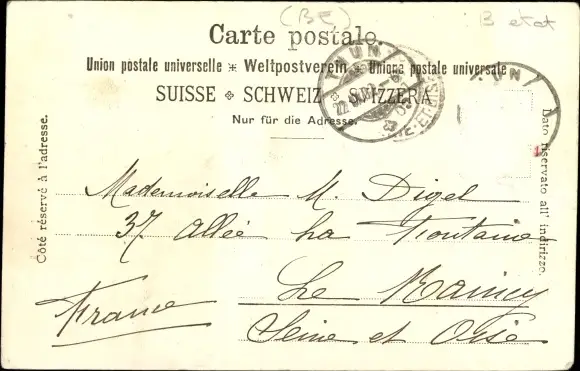 (BE)
B etat
Carte postale.
Union postale universelle ✻ Weltpostverein ✻ Unione postale universale
SUISSE ✤ SCHWEIZ SVIZZERA
Nur für die Adresse.
THUN
Côté réservé à l'adresse.
Dato riservato all' indirizzo.
Mademoiselle M. Digel
37 Allée La Fontaine
Le Raincy
Seine et Oise
France